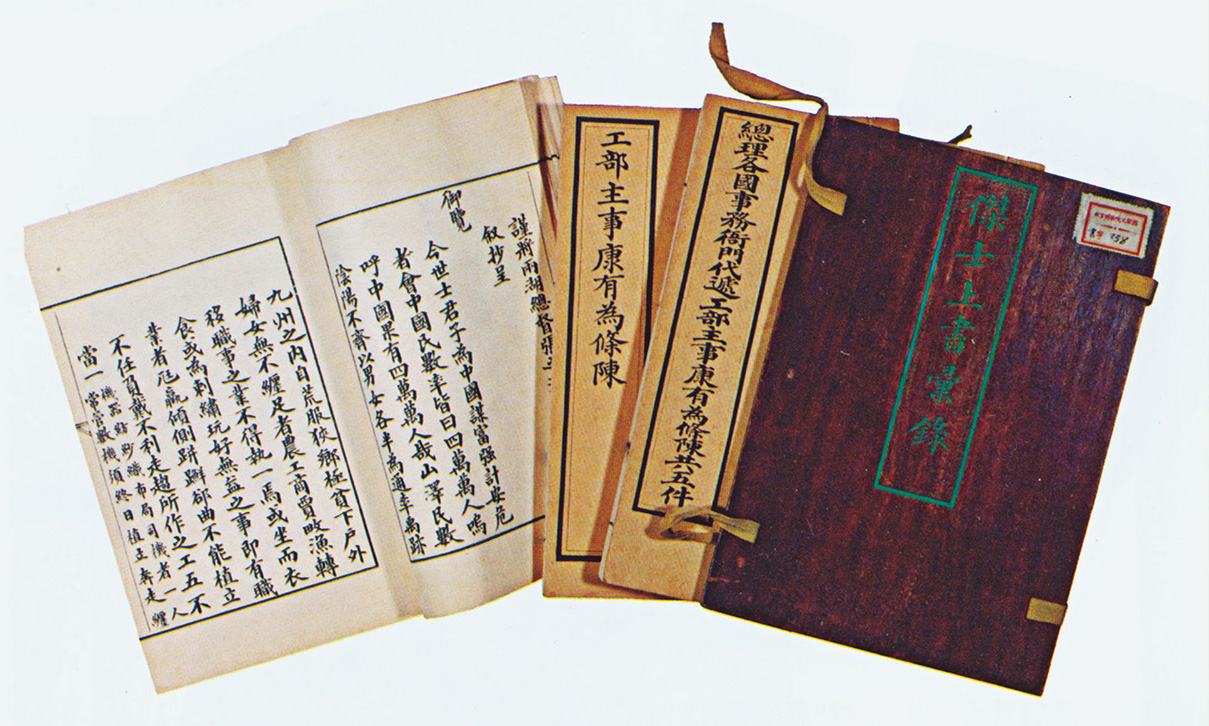 傑士上書彙錄
總理各國事務衙門代遞工部主事康有為條陳共五件
工部主事康有為條陳
謹將兩湖總督張之
叙抄呈
御覽
今世士君子為中國謀富強計安危
者會中國民數率皆曰四萬萬人嗚
呼中國果有四萬萬人哉山澤民數
陰陽不齊以男女各半為通率禹跡
九州之內自荒服狹鄉極貧下戶外
婦女無不纏足者農工商賈畋漁轉
移職事之業不得執一焉或坐而衣
食或為刺繡玩好無益之事即有職
業者尫羸傾側跰躃郤曲不能植立
不任負戴不利走趨所作之工五不
當一機器紡紗織布局司機者一人
常管數機須終日植立奔走纏